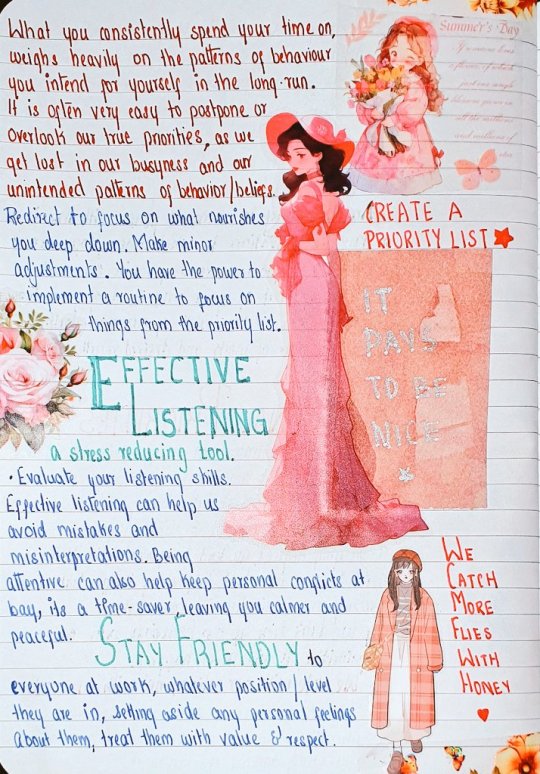 What you consistently spend your time on,
weighs heavily on the patterns of behaviour
you intend for yourself in the long-run.
It is often very easy to postpone or
overlook our true priorities, as we
get lost in our busyness and our
unintended patterns of behavior/beliefs.
Redirect to focus on what nourishes
you deep down. Make minor
adjustments. You have the power to
implement a routine to focus on
things from the priority list.
Summer's Day
CREATE A
PRIORITY LIST
IT
PAYS
TO BE
NICE
EFFECTIVE
LISTENING
a stress reducing tool.
• Evaluate your listening skills.
Effective listening can help us
avoid mistakes and
misinterpretations. Being
attentive can also help keep personal conflicts at
bay, its a time-saver, leaving you calmer and
peaceful.
STAY FRIENDLY to
everyone at work, whatever position / level
they are in, setting aside any personal feelings
about them, treat them with value & respect.
WE
CATCH
MORE
FLIES
WITH
HONEY